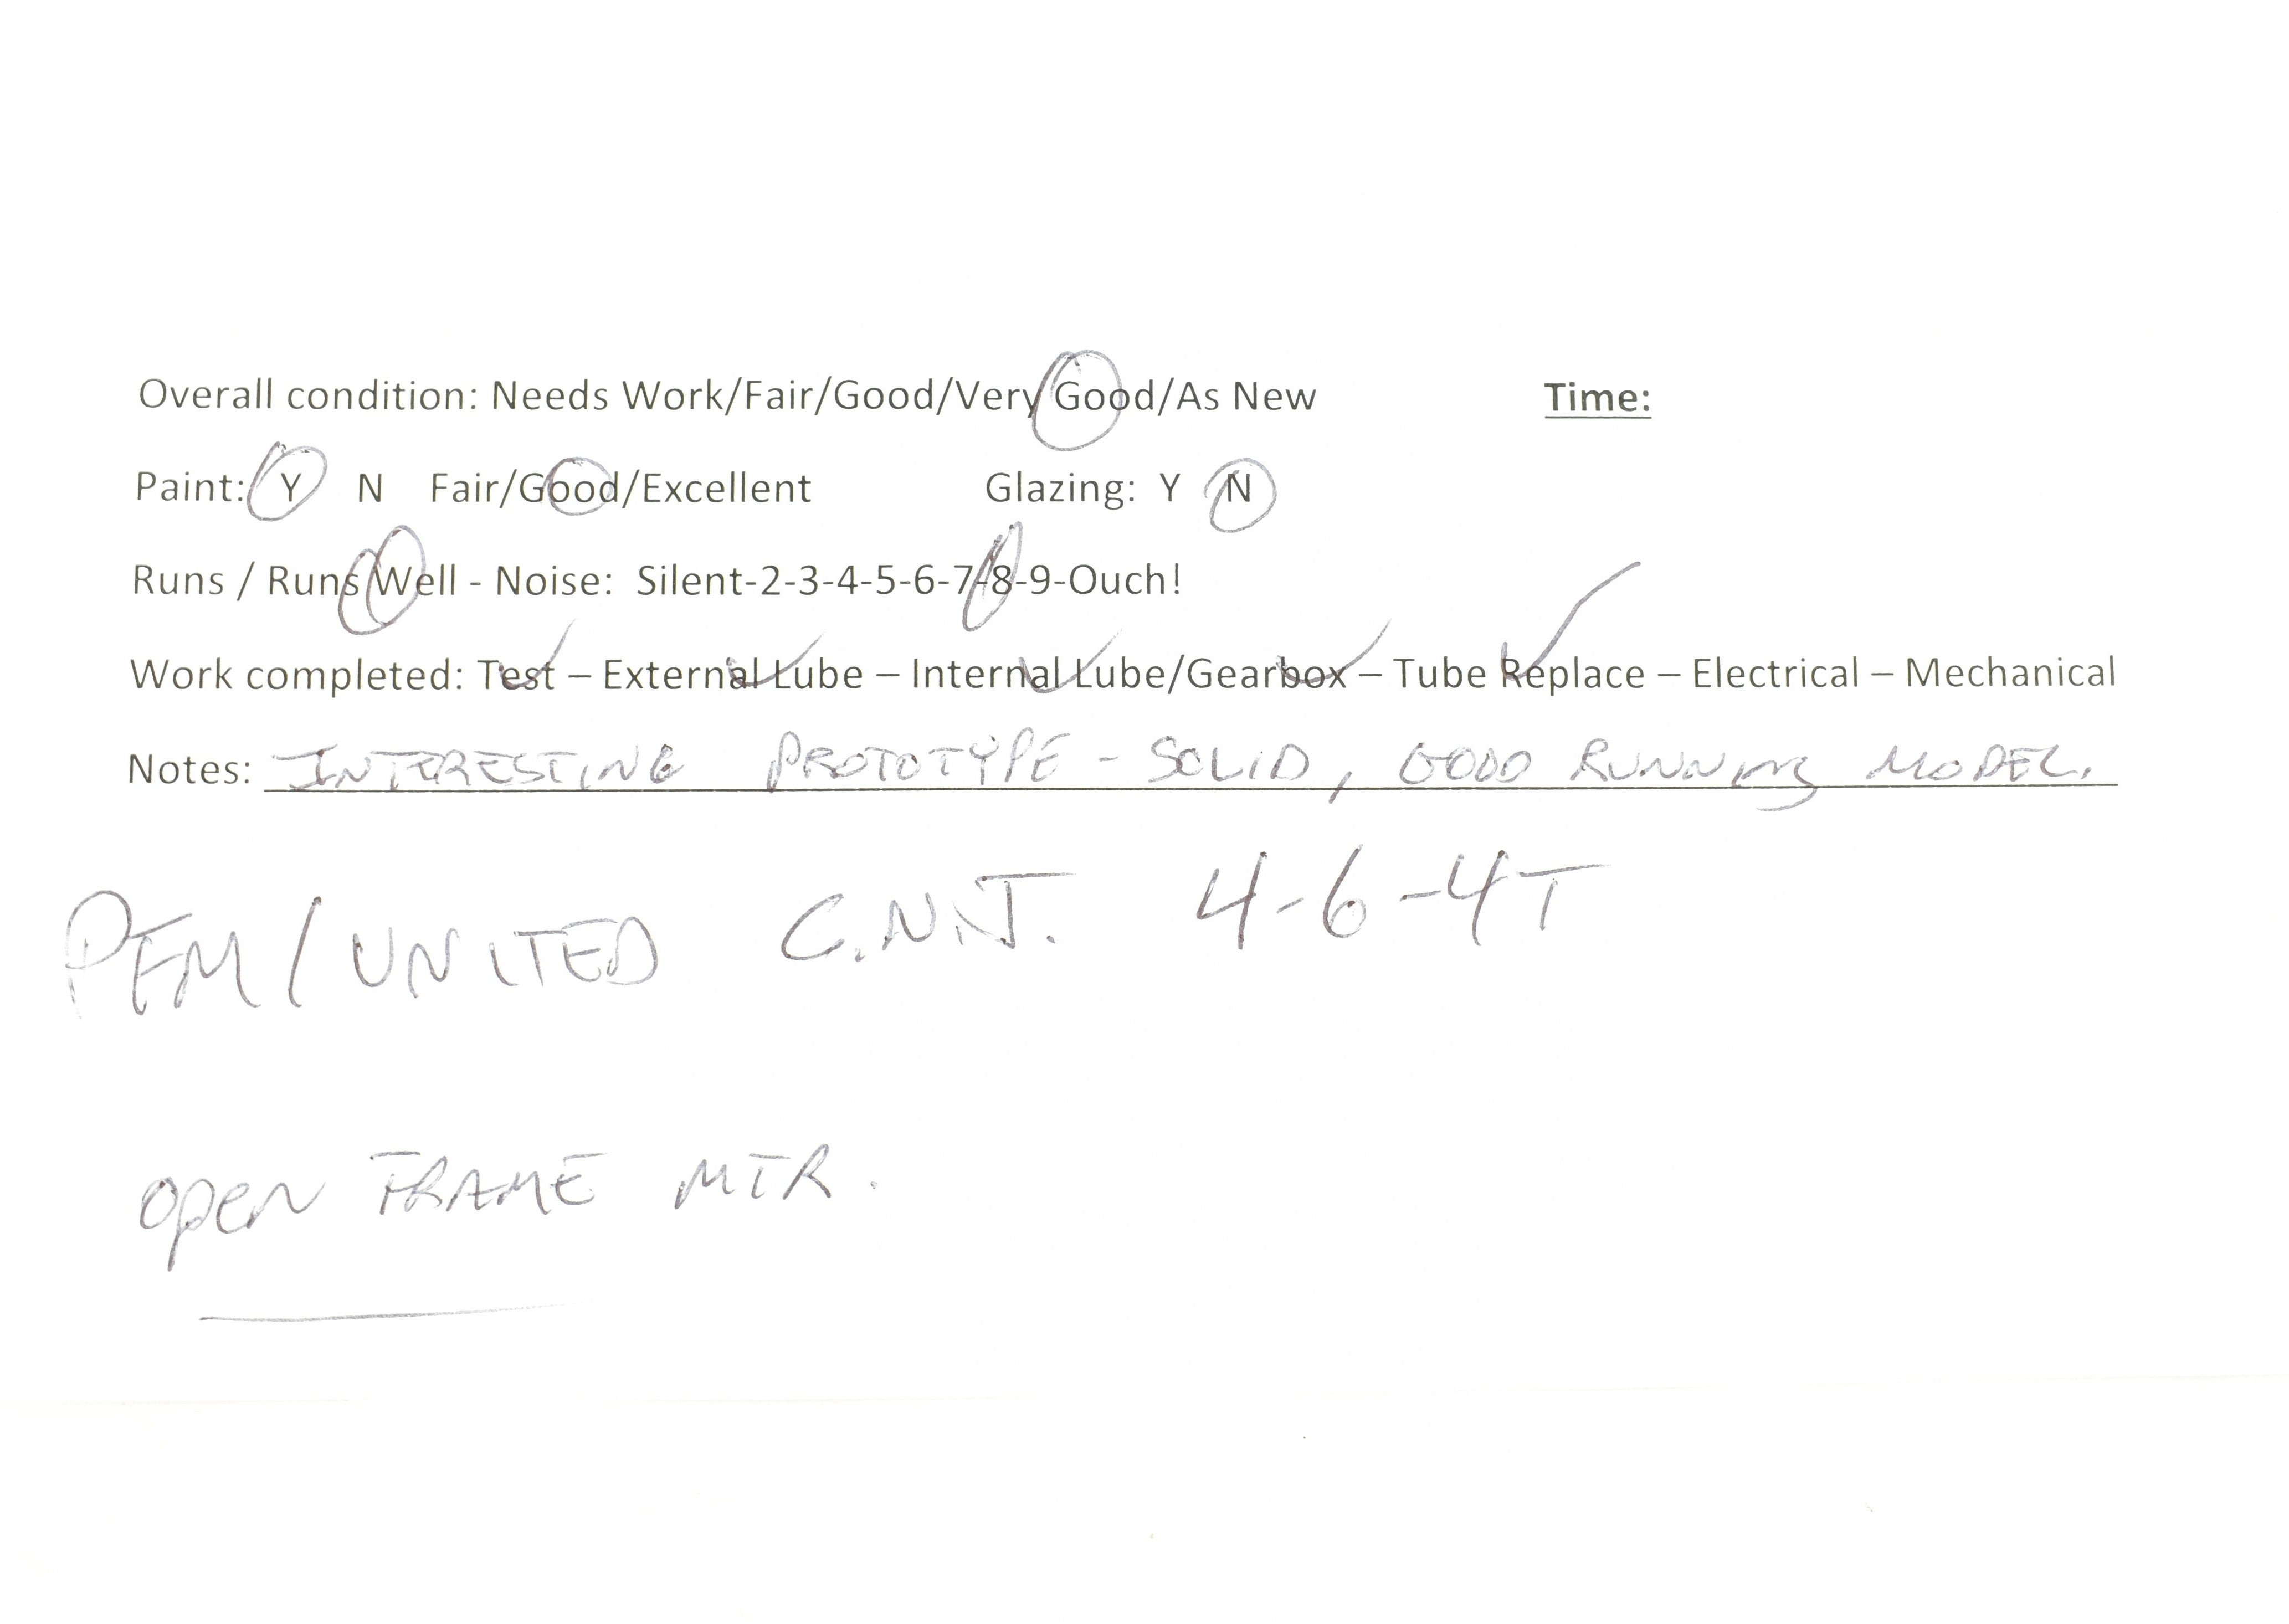 Overall condition: Needs Work/Fair/Good/Very Good/As New Time:
Paint: Y N Fair/Good/Excellent Glazing: Y N
Runs / Runs Well - Noise: Silent-2-3-4-5-6-7-8-9-Ouch!
Work completed: Test – External Lube – Internal Lube/Gearbox – Tube Replace – Electrical – Mechanical
Notes: INTERESTING PROTOTYPE - SOLID, GOOD RUNNING MODEL.
PFM/UNITED C.N.J. 4-6-4T
OPEN FRAME MTR.